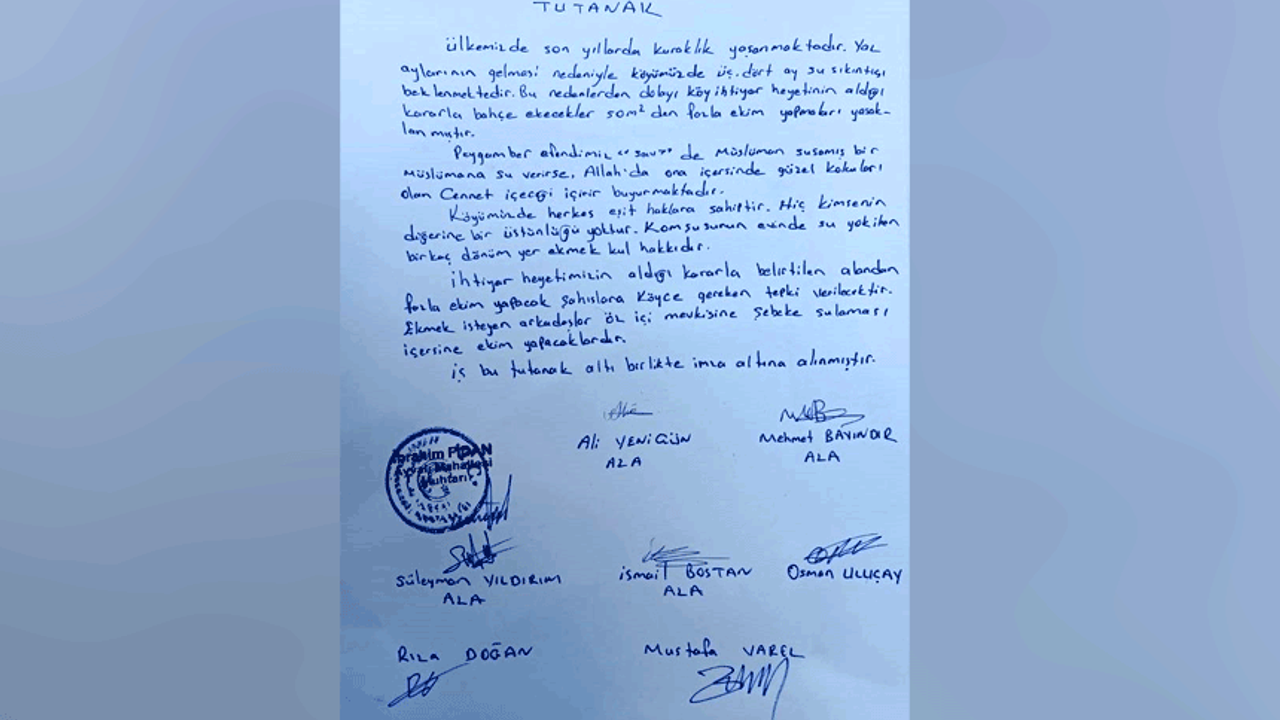 TUTANAK
Ülkemizde son yıllarda kuraklık yaşanmaktadır. Yaz
aylarının gelmesi nedeniyle köyümüzde üç, dört ay su sıkıntısı
beklenmektedir. Bu nedenlerden dolayı köy ihtiyar heyetinin aldığı
kararla bahçe ekecekler 50m² den fazla ekim yapmaları yasak-
lanmıştır.
Peygamber efendimiz "sav" de Müslüman susamış bir
müslümana su verirse, Allah'da ona içersinde güzel kokuları
olan Cennet içeceği içirir buyurmaktadır.
Köyümüzde herkes eşit haklara sahiptir. Hiç kimsenin
diğerine bir üstünlüğü yoktur. Komşusunun evinde su yok iken
birkaç dönüm yer ekmek kul hakkıdır.
İhtiyar heyetimizin aldığı kararla belirtilen alandan
fazla ekim yapacak şahıslara Köyce gereken tepki verilecektir.
Ekmek isteyen arkadaşlar öz içi mevkisine Şebeke sulaması
içersine ekim yapacaklardır.
iş bu tutanak altı birlikte imza altına alınmıştır.
Ali YENİGÜN
AZA
Mehmet BAYINDIR
AZA
İbrahim FİDAN
Ayvalı Mahallesi
Muhtarı
Süleyman YILDIRIM
AZA
İsmail BOSTAN
AZA
Osman ULUÇAY
Rıza DOĞAN
Mustafa VAREL